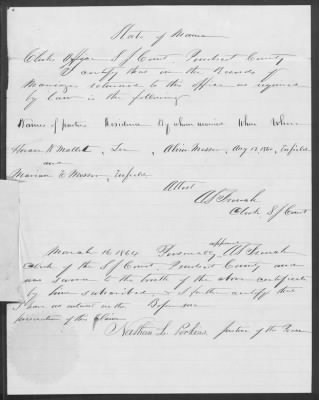 State of Maine
Clerks Office S J Court. Penobscot County
I certify that on the Records of
Marriages returned to this office as required
by law is the following
Names of parties Residence By whom married When Where
Horace N Mallett, Lee, Alvin Messer, Aug 12, 1860, Enfield
and
Marian F. Messer, Enfield
Attest
Clerk S J Court
March 16 1864 Personally appeared
Clerk of the S J Court, Penobscot County and
was sworn to the truth of the above certificate
by him subscribed & I further certify that
I have no interest in the Before me
prosecution of this Claim
Nathan L. Perkins, justice of the Peace